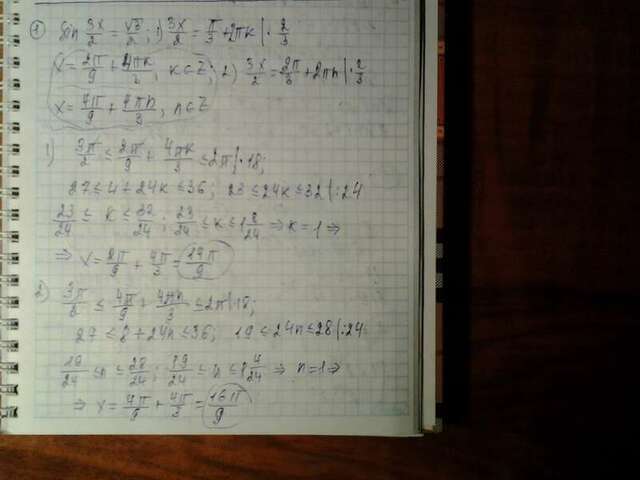 ① sin 3x/2 = √3/2 ; 1) 3x/2 = π/3 + 2πk |· 2/3
x = 2π/9 + 4πk/3, k∈Z; 2) 3x/2 = 2π/3 + 2πn |· 2/3
x = 4π/9 + 4πn/3, n∈Z
1) 3π/2 ≤ 2π/9 + 4πk/3 ≤ 2π |·18;
27 ≤ 4 + 24k ≤ 36; 23 ≤ 24k ≤ 32 |:24
23/24 ≤ k ≤ 32/24 ; 23/24 ≤ k ≤ 1 8/24 ⇒ k = 1 ⇒
⇒ x = 2π/9 + 4π/3 = 14π/9
2) 3π/2 ≤ 4π/9 + 4πn/3 ≤ 2π |·18;
27 ≤ 8 + 24n ≤ 36; 19 ≤ 24n ≤ 28 |:24
19/24 ≤ n ≤ 28/24 ; 19/24 ≤ n ≤ 1 4/24 ⇒ n = 1 ⇒
⇒ x = 4π/9 + 4π/3 = 16π/9